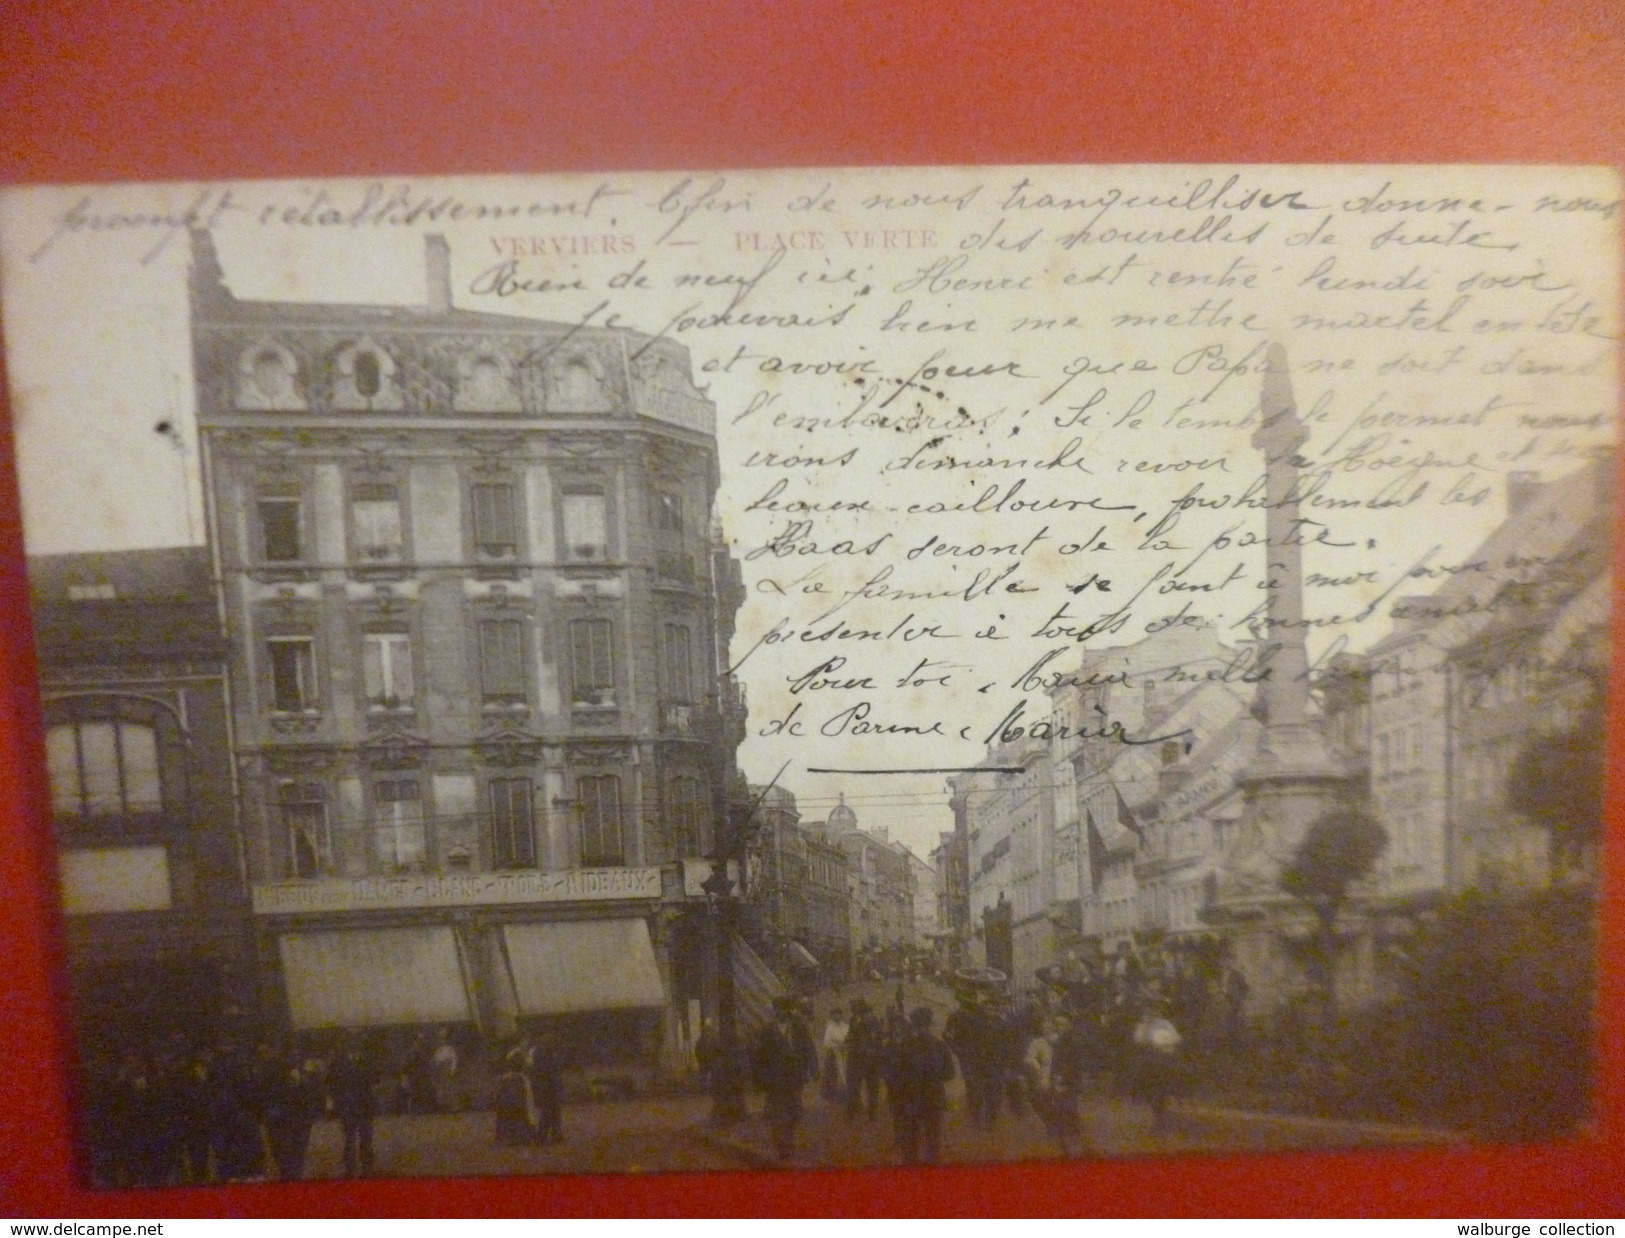 prompt rétablissement. Afin de nous tranquilliser donne-nous
VERVIERS — PLACE VERTE
des nouvelles de suite.
Rien de neuf ici. Henri est rentré lundi soir
je pouvais bien me mettre martel en tête
et avoir peur que Papa ne soit dans
l'embarras; Si le temps le permet nous
irons dimanche revoir la Hoëgne et
beaux cailloux, probablement les
Haas seront de la partie.
La famille se joint à moi pour
présenter à tous de bonnes amitiés
Pour toi, Maria mille
de Parme, Maria.
BLANC - TOILE - RIDEAUX
www.delcampe.net
walburge collection